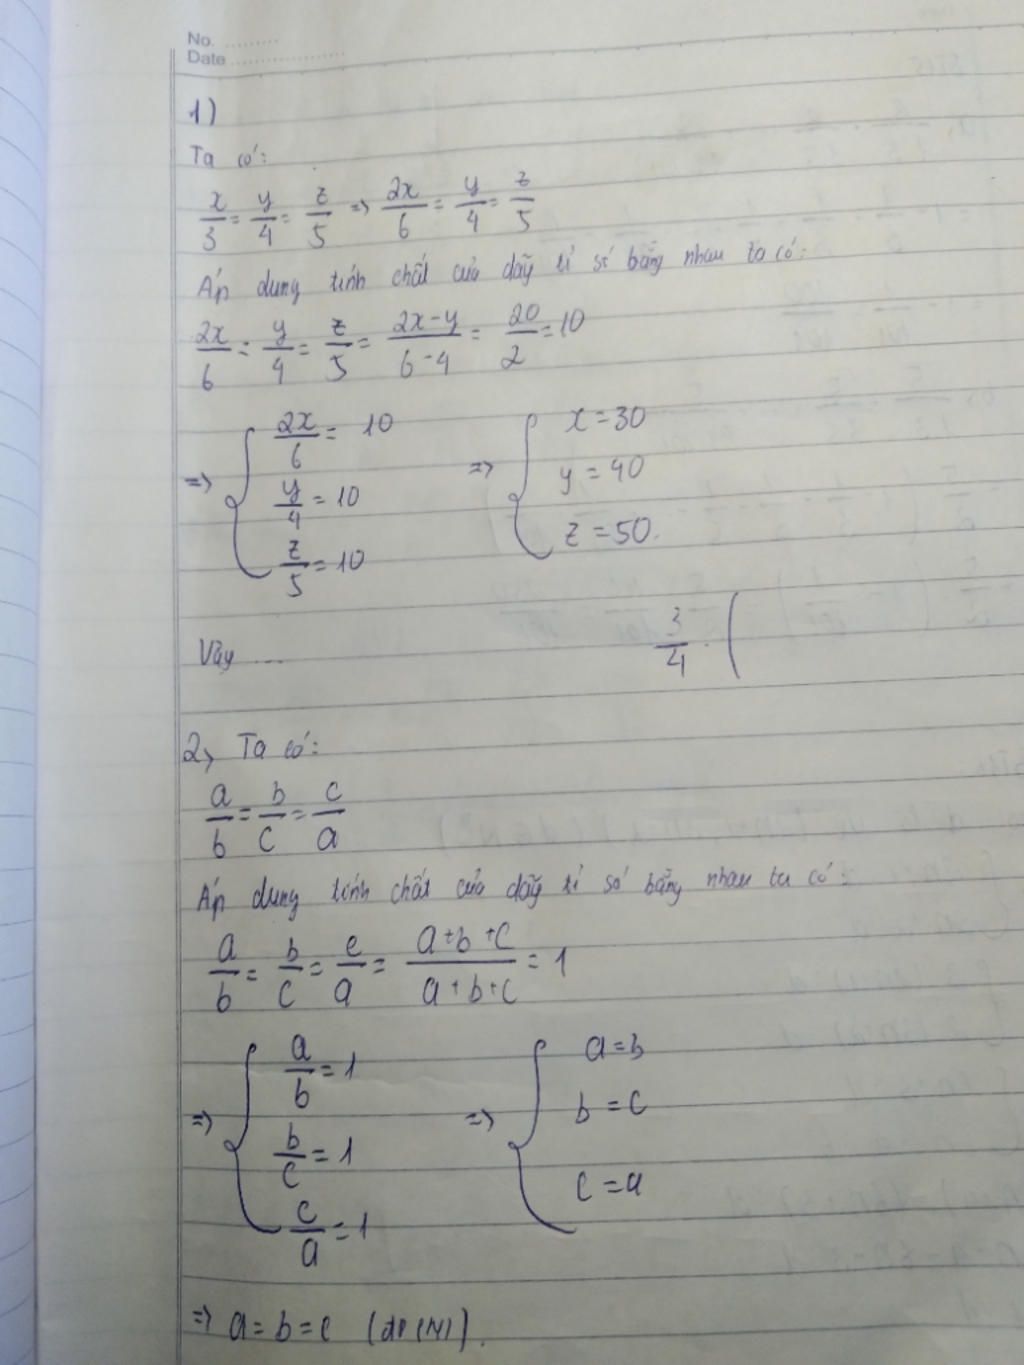 No. .........
Date ...................
1)
Ta có:
x/3 = y/4 = z/5 => 2x/6 = y/4 = z/5
Áp dụng tính chất của dãy tỉ số bằng nhau ta có:
2x/6 = y/4 = z/5 = 2x-y/6-4 = 20/2 = 10
=> { 2x/6 = 10 => { x = 30
y/4 = 10 y = 40
z/5 = 10 z = 50.
Vậy ... 3/4 . (
2, Ta có:
a/b = b/c = c/a
Áp dụng tính chất của dãy tỉ số bằng nhau ta có:
a/b = b/c = c/a = a+b+c/a+b+c = 1
=> { a/b = 1 => { a = b
b/c = 1 b = c
c/a = 1 c = a
=> a = b = c (đpcm).